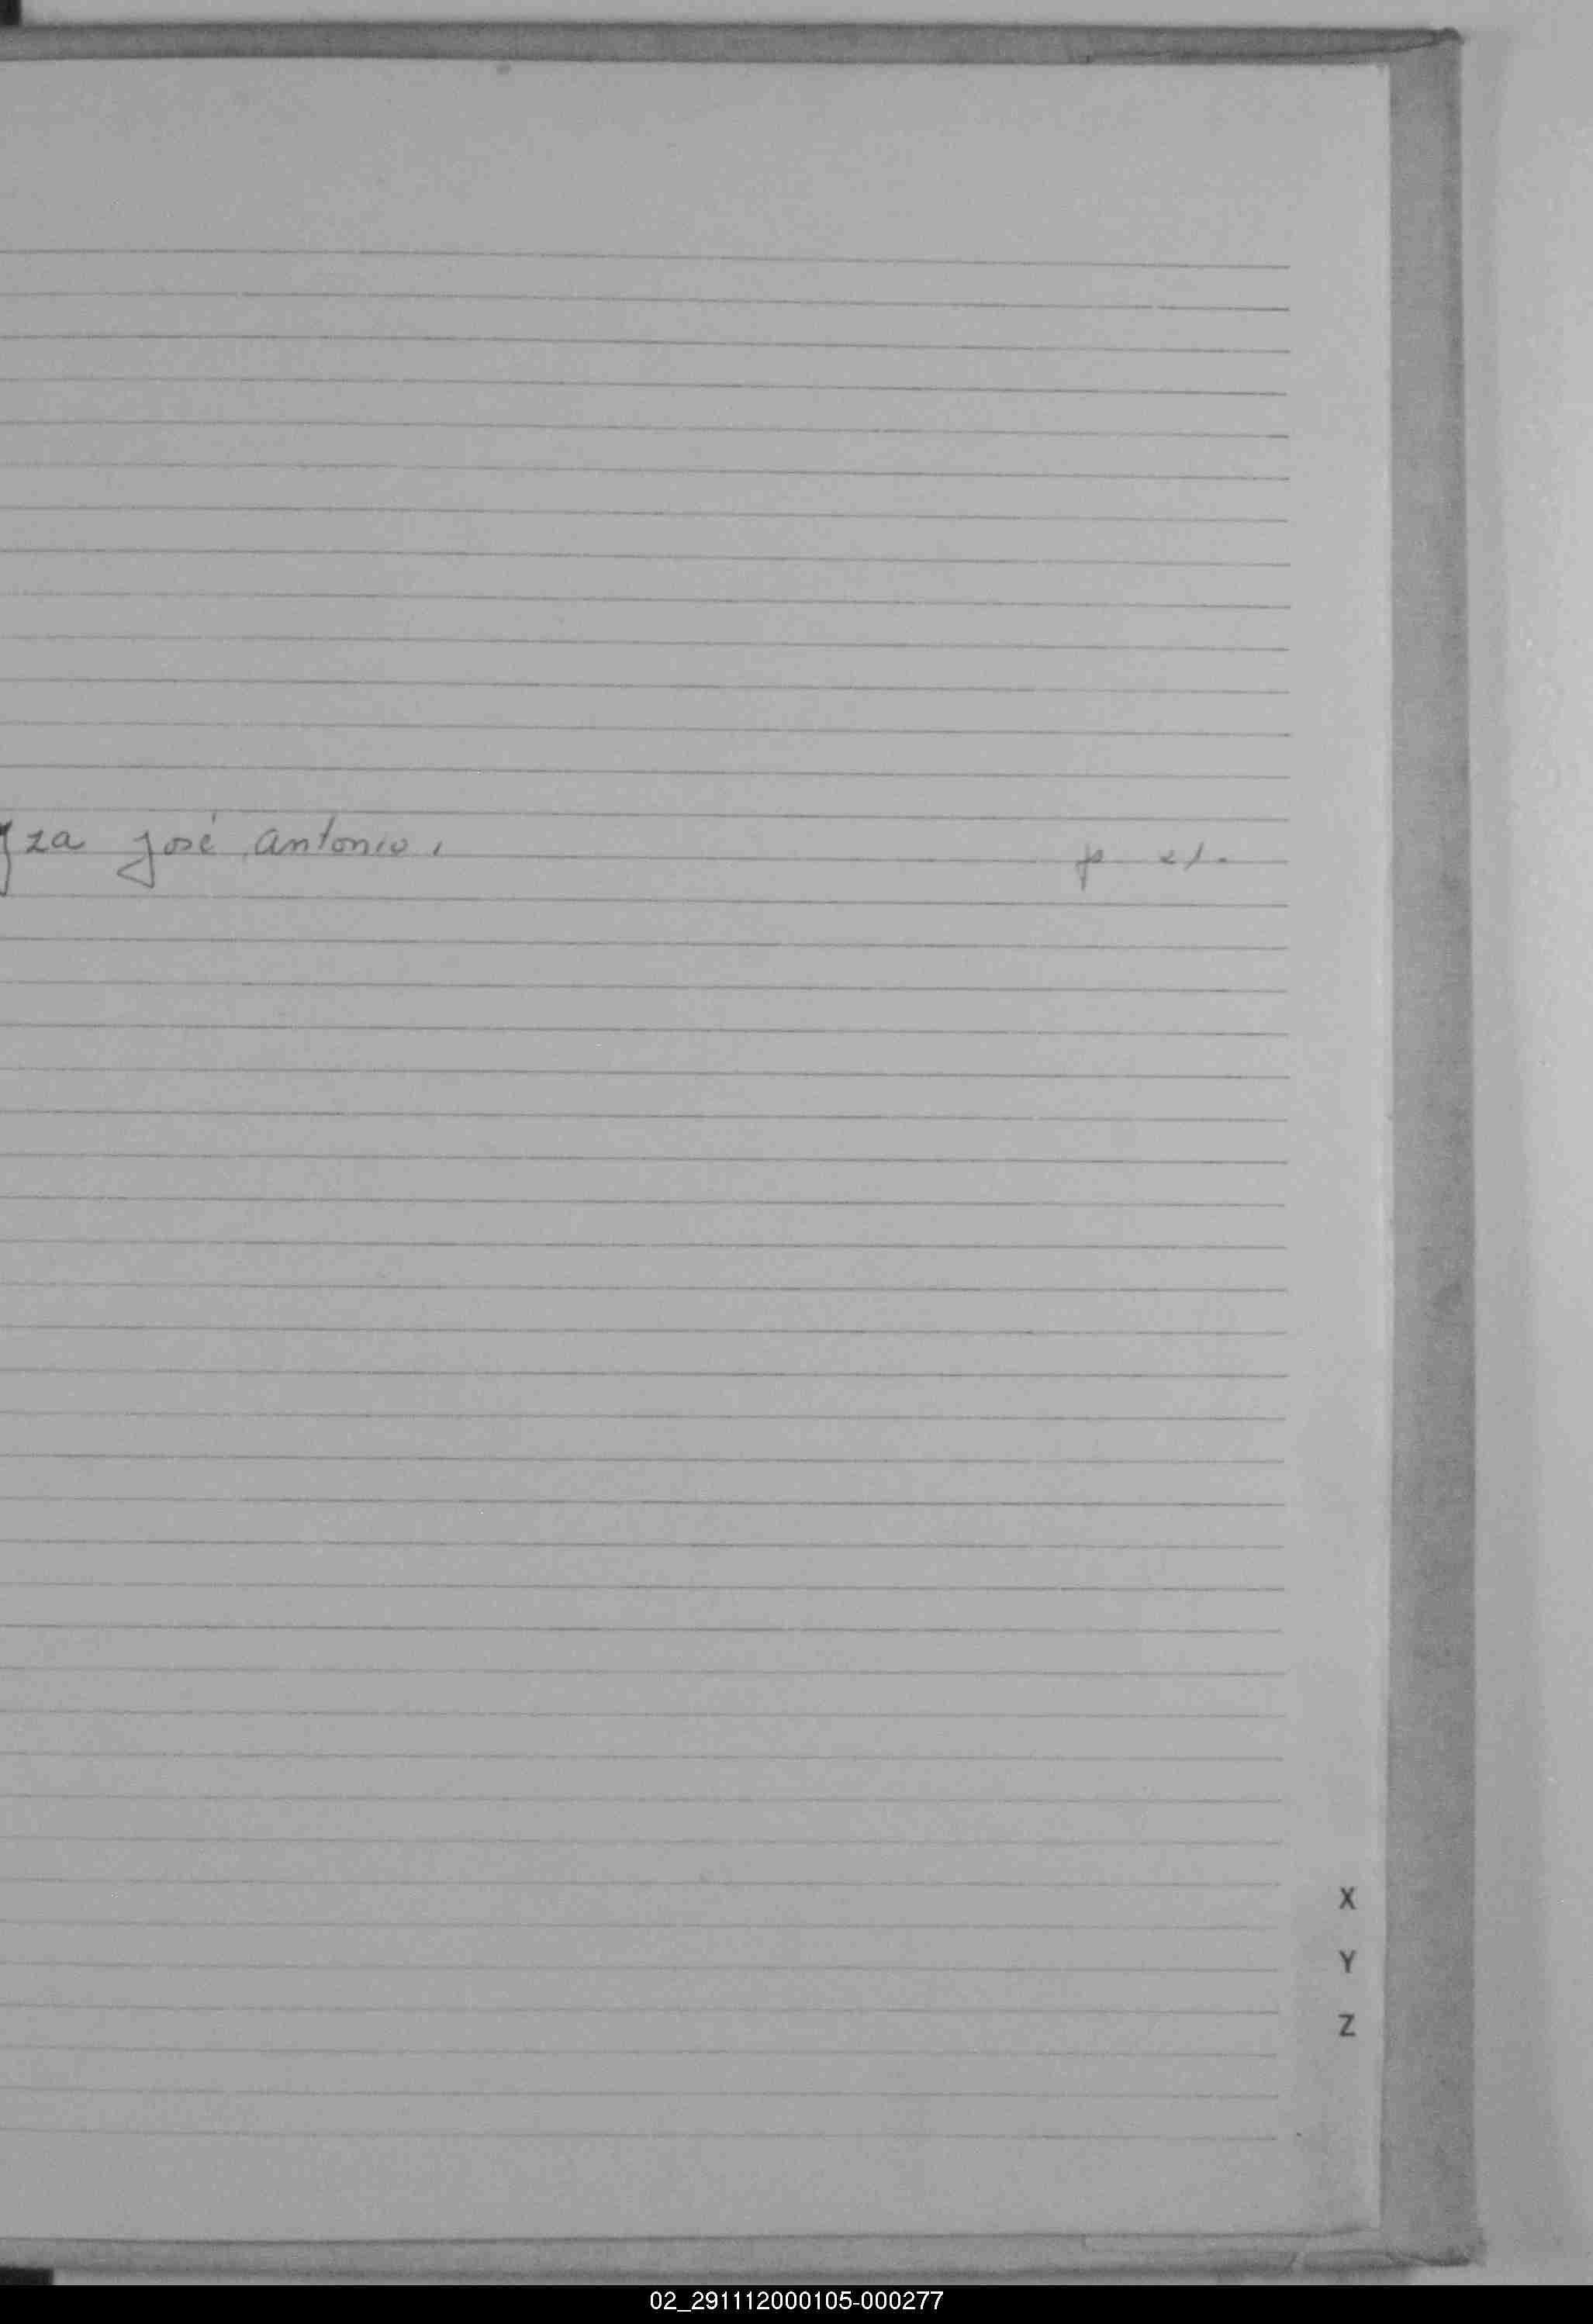 za José Antonio.
X
Y
Z
02_291112000105-000277